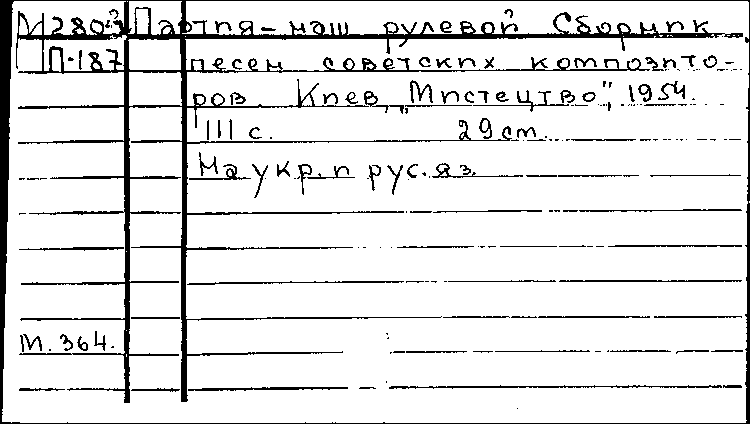 М2803 Партия – наш рулевой Сборник
П-187 песен советских композито-
ров. Киев, „Мистецтво", 1954.
111 с. 29 cm.
На укр. и рус. яз.
М. 364.